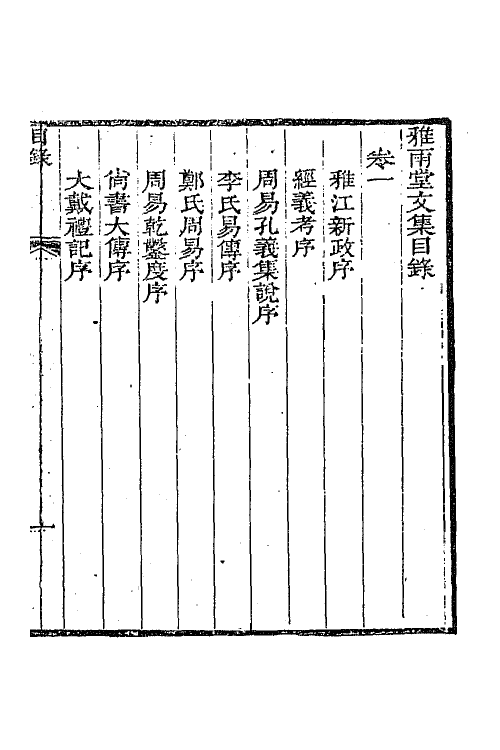 雅雨堂文集目錄
卷一
雅江新政序
經義考序
周易孔義集說序
李氏易傳序
鄭氏周易序
周易乾鑿度序
尙書大傳序
大戴禮記序
目錄
一